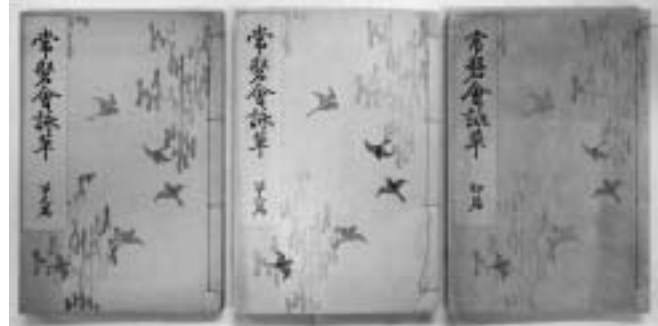 常磐會詠草
常磐會詠草
常磐會詠草 初篇